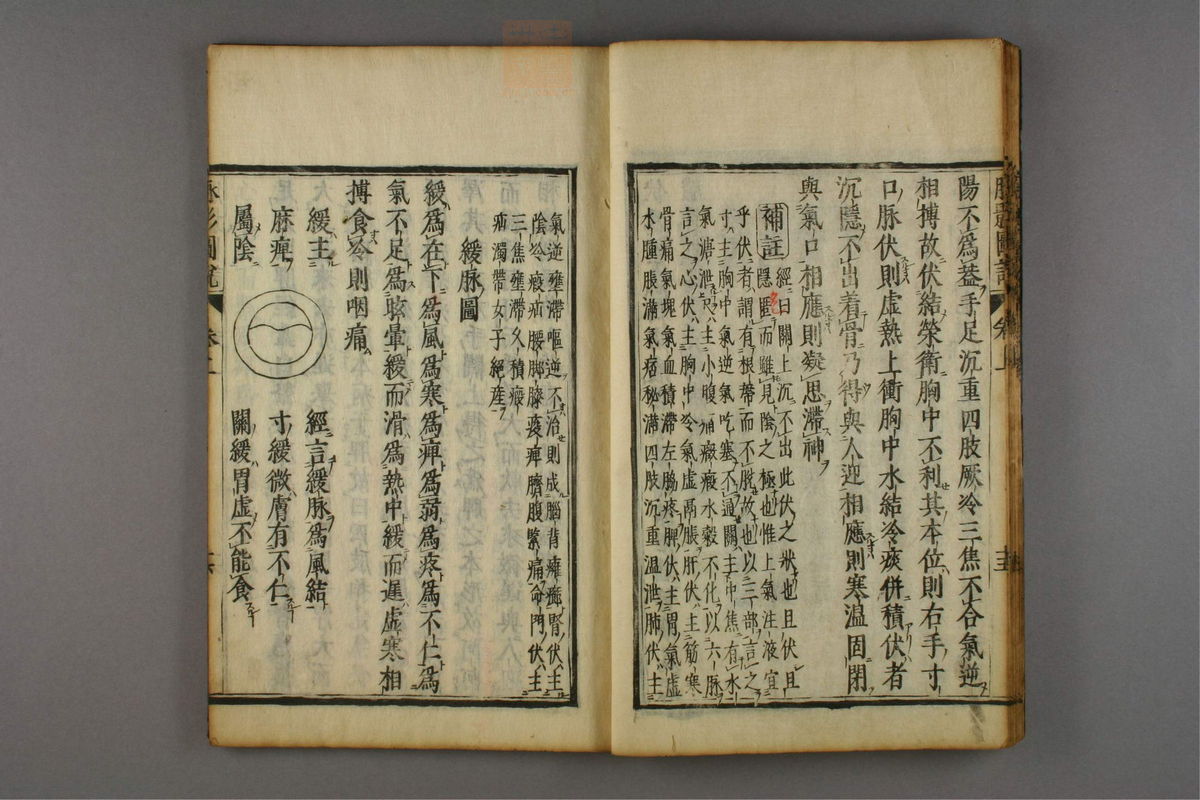 陽不爲益手足沉重四肢厥冷三焦不合氣逆
相搏故伏結榮衛胸中不利其本位則右手寸
口脉伏則虛熱上衝胸中水結冷痰併積伏者
沉隱不出着骨乃得與人迎相應則寒温固閉
與氣口相應則凝思滯神
補註
經曰關上沉不出此伏之狀也且伏且
隱匿而難見陰之極也惟上氣注液宜
乎伏者謂有根蒂而不脱故也以三部言之
寸主胸中氣逆氣吃塞不通關主中焦有水
氣溏泄尺主小腹痛癥瘕水穀不化以六脉
言之心伏主胸中冷氣虛鬲脹肝伏主筋寒
骨痛氣塊氣血積滯左脇疼脾伏主胃氣虛
水腫脹滿氣痞秘滿四肢沉重温泄肺伏主
氣逆壅滯嘔逆不治則成腦背癰癤腎伏主
陰冷㿉疝腰脚膝痠痺臍腹緊痛命門伏主
三焦壅滯久積癥
疝濁帶女子絕産
緩脉圖
緩爲在下爲風爲寒爲痺爲弱爲疼爲不仁爲
氣不足爲眩暈緩而滑爲熱中緩而遲虛寒相
搏食冷則咽痛
緩主
麻痺
屬陰
經言緩脉爲風結
寸緩微膚有不仁
關緩胃虛不能食
脉影圖說
卷上